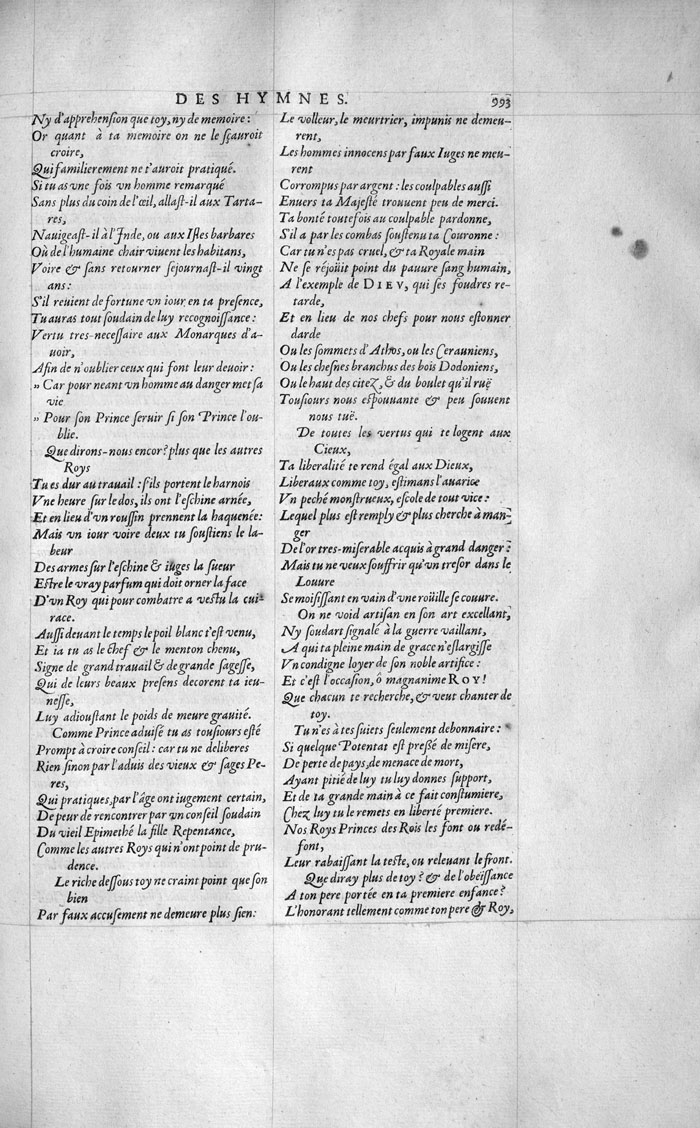 DES HYMNES.
993
Ny d'apprehension que toy, ny de memoire :
Or quant à ta memoire on ne le sçauroit
croire,
Qui familierement ne t'auroit pratiqué.
Si tu as vne fois vn homme remarqué
Sans plus du coin de l'œil, allast-il aux Tarta-
res,
Nauigeast-il à l'Inde, ou aux Isles barbares
Où de l'humaine chair viuent les habitans,
Voire & sans retourner sejournast-il vingt
ans :
S'il reuient de fortune vn iour en ta presence,
Tu auras tout soudain de luy recognoissance :
Vertu tres-necessaire aux Monarques d'a-
uoir,
Afin de n'oublier ceux qui font leur deuoir :
„ Car pour neant vn homme au danger met sa
vie
„ Pour son Prince seruir si son Prince l'ou-
blie.
Que dirons-nous encor? plus que les autres
Roys
Tu es dur au trauail : s'ils portent le harnois
Vne heure sur le dos, ils ont l'eschine arnée,
Et en lieu d'vn roussin prennent la haquenée:
Mais vn iour voire deux tu soustiens le la-
beur
Des armes sur l'eschine & iuges la sueur
Estre le vray parfum qui doit orner la face
D'vn Roy qui pour combatre a vestu la cui-
race.
Aussi deuant le temps le poil blanc t'est venu,
Et ia tu as le chef & le menton chenu,
Signe de grand trauail & de grande sagesse,
Qui de leurs beaux presens decorent ta ieu-
nesse,
Luy adioustant le poids de meure grauité.
Comme Prince aduisé tu as tousiours esté
Prompt à croire conseil : car tu ne deliberes
Rien sinon par l'aduis des vieux & sages Pe-
res,
Qui pratiques, par l'âge ont iugement certain,
De peur de rencontrer par vn conseil soudain
Du vieil Epimethé la fille Repentance,
Comme les autres Roys qui n'ont point de pru-
dence.
Le riche dessous toy ne craint point que son
bien
Par faux accusement ne demeure plus sien:
Le volleur, le meurtrier, impunis ne demeu-
rent,
Les hommes innocens par faux Iuges ne meu-
rent
Corrompus par argent : les coulpables aussi
Enuers ta Majesté trouuent peu de merci.
Ta bonté toutefois au coulpable pardonne,
S'il a par les combas soustenu ta Couronne :
Car tu n'es pas cruel, & ta Royale main
Ne se réjoüit point du pauure sang humain,
A l'exemple de DIEV, qui ses foudres re-
tarde,
Et en lieu de nos chefs pour nous estonner
darde
Ou les sommets d'Athos, ou les Cerauniens,
Ou les chesnes branchus des bois Dodoniens,
Ou le haut des citez, & du boulet qu'il ruë
Tousiours nous espouuante & peu souuent
nous tuë.
De toutes les vertus qui te logent aux
Cieux,
Ta liberalité te rend égal aux Dieux,
Liberaux comme toy, estimans l'auarice
Vn peché monstrueux, escole de tout vice :
Lequel plus est remply & plus cherche à man-
ger
De l'or tres-miserable acquis à grand danger :
Mais tu ne veux souffrir qu'vn tresor dans le
Louure
Se moisissant en vain d'vne roüille se couure.
On ne void artisan en son art excellant,
Ny soudart signalé à la guerre vaillant,
A qui ta pleine main de grace n'eslargisse
Vn condigne loyer de son noble artifice :
Et c'est l'occasion, ô magnanime ROY!
Que chacun te recherche, & veut chanter de
toy.
Tu n'es à tes suiets seulement debonnaire :
Si quelque Potentat est pressé de misere,
De perte de pays, de menace de mort,
Ayant pitié de luy tu luy donnes support,
Et de ta grande main à ce fait constumiere,
Chez luy tu le remets en liberté premiere.
Nos Roys Princes des Rois les font ou redé-
font,
Leur rabaissant la teste, ou releuant le front.
Que diray plus de toy? & de l'obeïssance
A ton pere portée en ta premiere enfance?
L'honorant tellement comme ton pere & Roy,